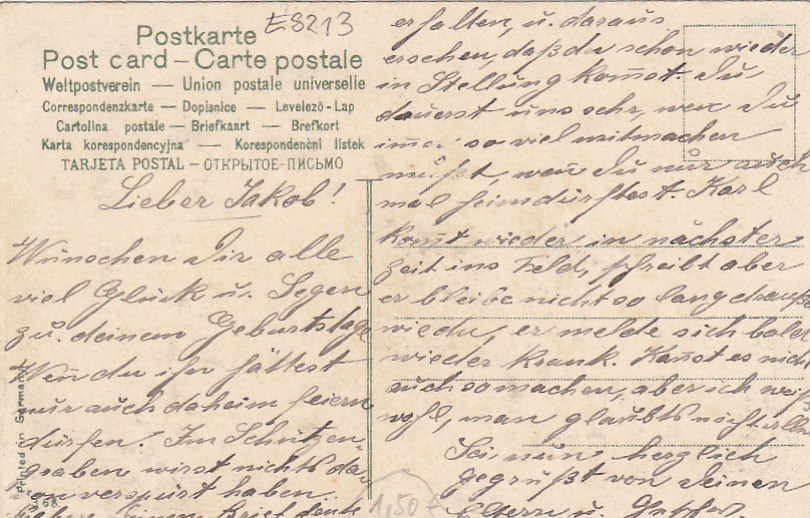 E8213
Postkarte
Post card – Carte postale
Weltpostverein — Union postale universelle
Correspondenzkarte — Dopisnice — Levelező-Lap
Cartolina postale — Briefkaart — Brefkort
Karta korespondencyjna — Korespondenční lístek
TARJETA POSTAL – ОТКРЫТОЕ-ПИСЬМО
Lieber Jakob!
Wünschen Dir alle
viel Glück u. Segen
zu deinem Geburtstage
Wen̄ du ihn hättest
nur auch daheim feiern
dürfen! Im Schützen-
graben wirst nichts da-
von verspürt haben.
Haben deinen Brief heute
erhalten, u. daraus
ersehen, daß du schon wieder
in Stellung kom̄st. Du
dauerst uns sehr, wen̄ Du
im̄er so viel mitmachen
mußt, wen̄ Du nur auch
mal heimdürftest. Karl
kom̄t wieder in nächster
Zeit ins Feld, schreibt aber
er bleibe nicht so lang drauß
wie du, er melde sich bald
wieder krank. Kan̄st es nicht
auch so machen, aber ich weiß
wohl, man glaubts nicht
Sei nun herzlich
gegrüßt von Deinen
Eltern u.
Printed in Germany
1,50 €